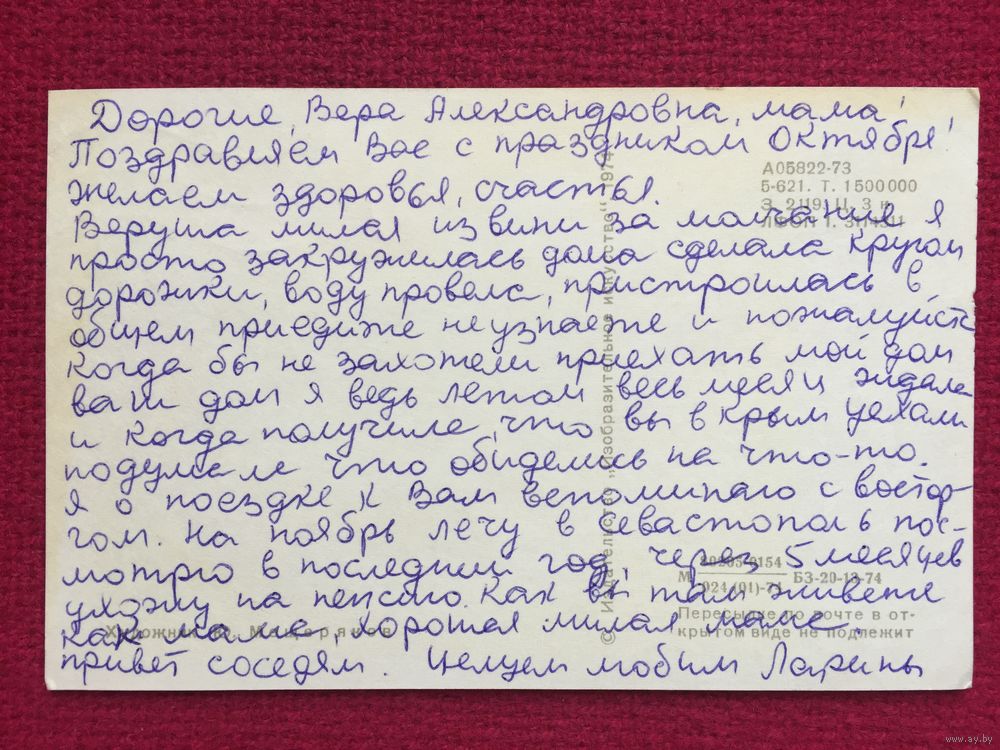 Дорогие, Вера Александровна, мама!
Поздравляем Вас с праздником Октября!
желаем здоровья, счастья.
Веруша милая извини за молчание я
просто закружилась дома сделала кругом
дорожки, воду провела, пристроилась в
общем приедите не узнаете и пожалуйста
когда бы не захотели приехать мой дом
ваш дом я ведь летом весь месяц ждала
и когда получила, что вы в Крым уехали
подумала что обиделись на что-то.
Я о поездке к Вам вспоминаю с востор-
гом. На ноябрь лечу в Севастополь пос-
мотрю в последний год, через 5 месяцев
ухожу на пенсию. Как вы там живете
как мама, хорошая милая мама.
привет соседям. Целуем любим Ларины
А05822-73
5-621. Т. 1500000
© Издательство «Изобразительное искусство» 1974
БЗ-20-13-74
Пересылке по почте в от-
крытом виде не подлежит
Художник
www.ay.by